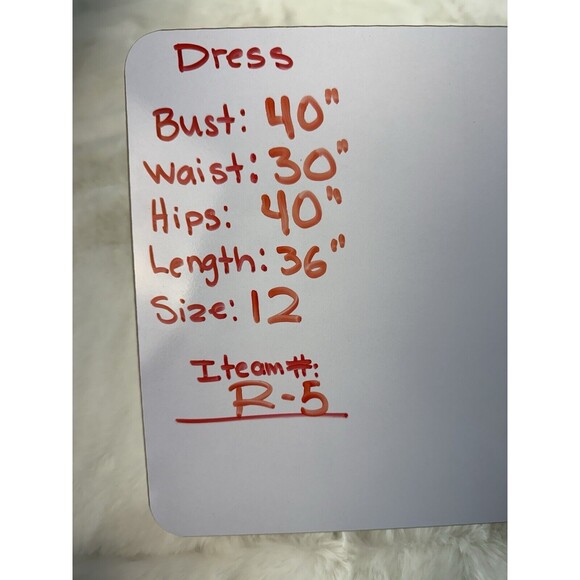 Dress
Bust: 40"
Waist: 30"
Hips: 40"
Length: 36"
Size: 12
Iteam#:
R-5